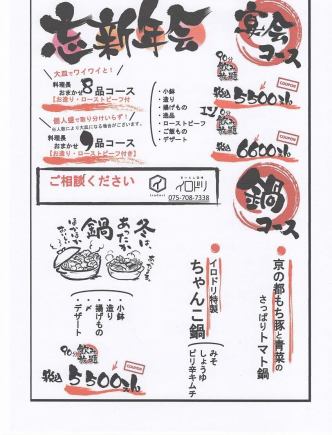 忘新年会
宴会コース
大皿でワイワイと!
料理長
おまかせ 8品コース
【お造り・ローストビーフ付】
個人盛で取り分けいらず!
※人数により大皿になる場合がございます。
料理長
おまかせ 9品コース
【お造り・ローストビーフ付き】
・小鉢
・造り
・揚げもの
・逸品
・ローストビーフ
・ご飯もの
・デザート
90分飲み放題
COUPON
税込5500円
COUPON
税込6600円
ご相談ください
イロドリ
075-708-7338
鍋コース
冬は、あったか鍋
・小鉢
・造り
・揚げもの
・〆
・デザート
90分飲み放題
COUPON
税込5500円
イロドリ特製
ちゃんこ鍋
みそ
しょうゆ
ピリ辛キムチ
京の都もち豚と青菜の
さっぱりトマト鍋